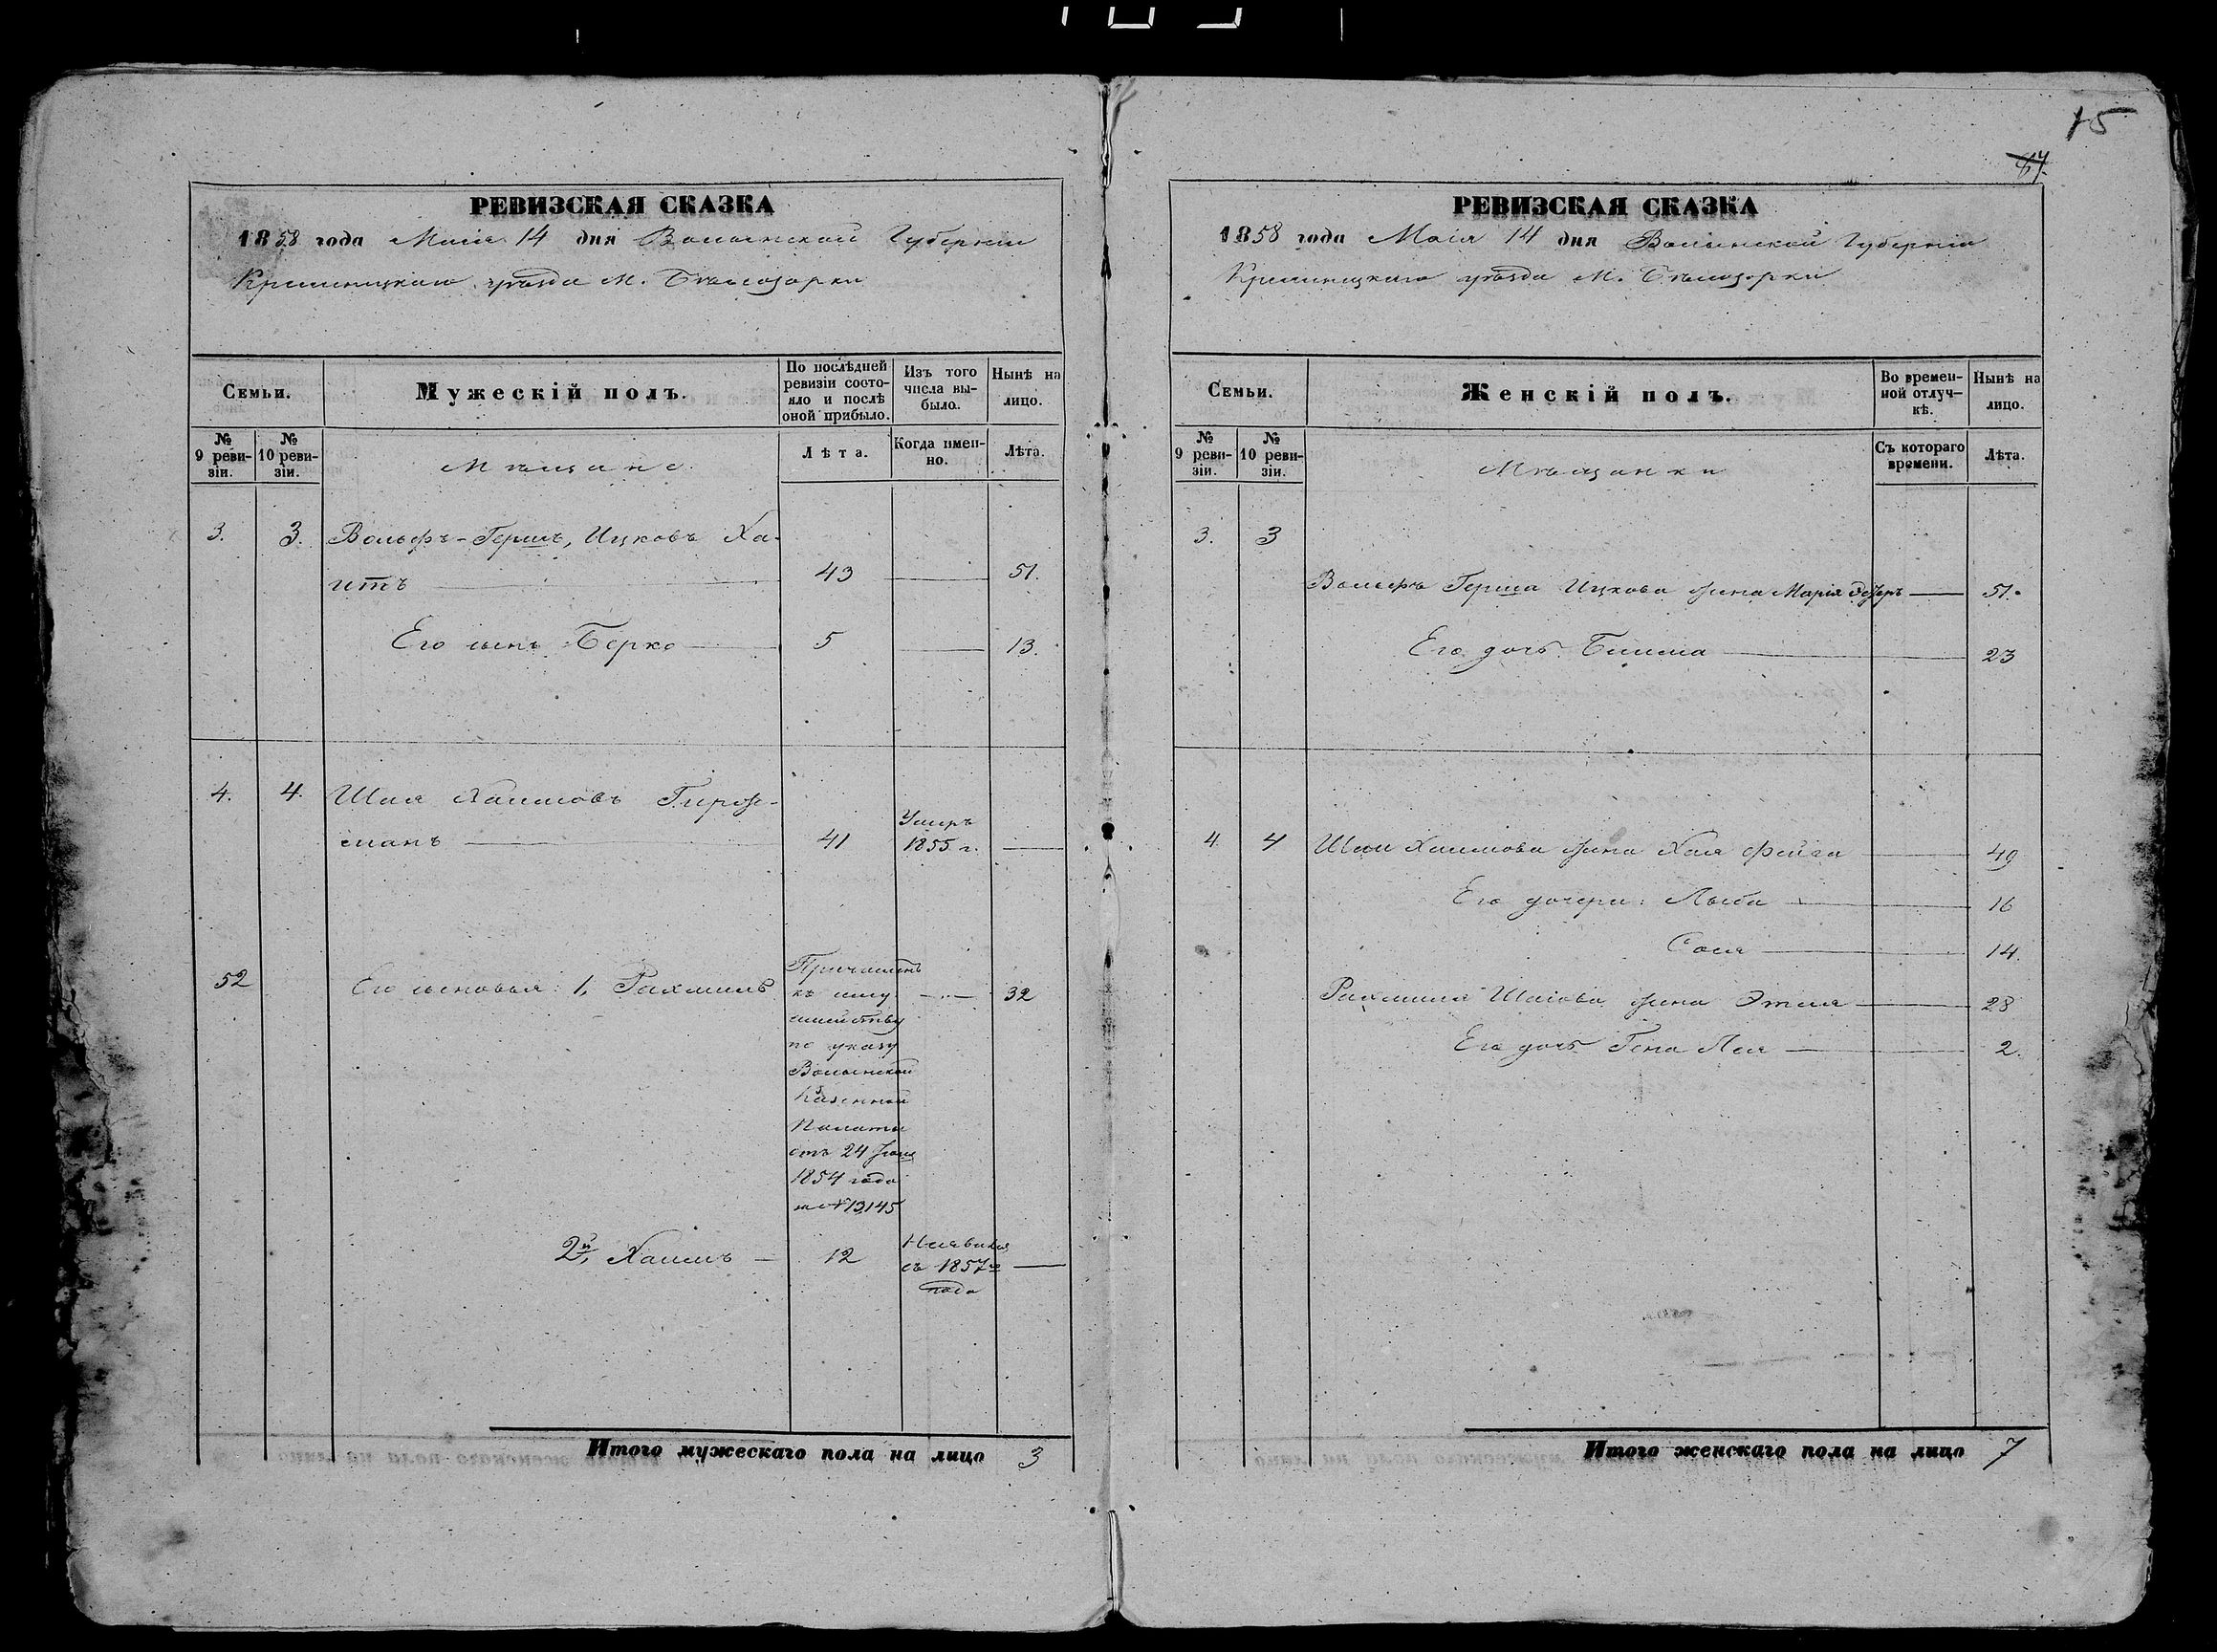 15
87.
РЕВИЗСКАЯ СКАЗКА
1858 года Маія 14 дня Волынской Губерніи
Кременецкаго уѣзда М. Бѣлозорки
Семьи.
Мужескій полъ.
По послѣдней ревизіи состояло и послѣ оной прибыло.
Изъ того числа выбыло.
Нынѣ на лицо.
№ 9 ревизіи.
№ 10 ревизіи.
Мѣщане
Лѣта.
Когда именно.
Лѣта.
3. 3. Вольфъ-Гершъ, Ицковъ Ха-
итъ 43 51.
Его сынъ Берко 5 13.
4. 4. Шая Хаимовъ
манъ 41 Умеръ 1855 г.
52 Его сыновья: 1, Рахмиль 32
Причисленъ
къ сему
семейству
по указу
Волынской
Казенной
Палаты
отъ 24
1854 года
за № 13145
2й, Хаимъ 12
Неявился
съ 1857го
года
Итого мужескаго пола на лицо 3
РЕВИЗСКАЯ СКАЗКА
1858 года Маія 14 дня Волынской Губерніи
Кременецкаго уѣзда М. Бѣлозорки
Семьи.
Женскій полъ.
Во временной отлучкѣ.
Нынѣ на лицо.
№ 9 ревизіи.
№ 10 ревизіи.
Мѣщанки
Съ котораго времени.
Лѣта.
3. 3
Вольфъ Герша Ицкова жена Марія 51.
Его дочь 23
4 4 Шаи Хаимова жена Хая Фейга 49
Его дочери: 16
Сося 14.
Рахмиля Шаіова жена Этля 28
Его дочь Гена Лея 2.
Итого женскаго пола на лицо 7